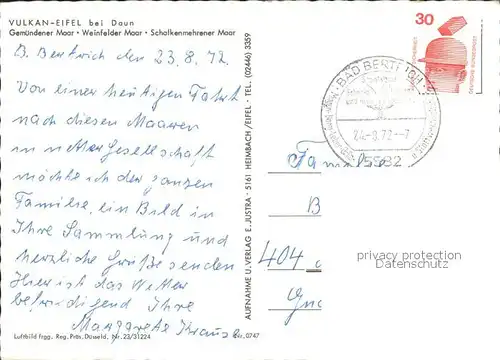 VULKAN-EIFEL bei Daun
Gemündener Maar · Weinfelder Maar · Schalkenmehrener Maar
B. Bertrich den 23.8.72
Von einer heutigen Fahrt
nach diesen Maaren
in netter Gesellschaft
möchte ich der ganzen
Familie, ein Bild in
Ihre Sammlung und
herzliche Grüße senden
Hier ist das Wetter
befriedigend Ihre
Margarete Kraus
Luftbild frgg. Reg. Präs. Düsseld. Nr. 23/31224
0747
AUFNAHME U. VERLAG E. JUSTRA · 5161 HEIMBACH/EIFEL · TEL. (02446) 3359
30
DEUTSCHE BUNDESPOST
BAD BERTRICH
24.-8.72--7
5582
Familie
B
404
privacy protection
Datenschutz